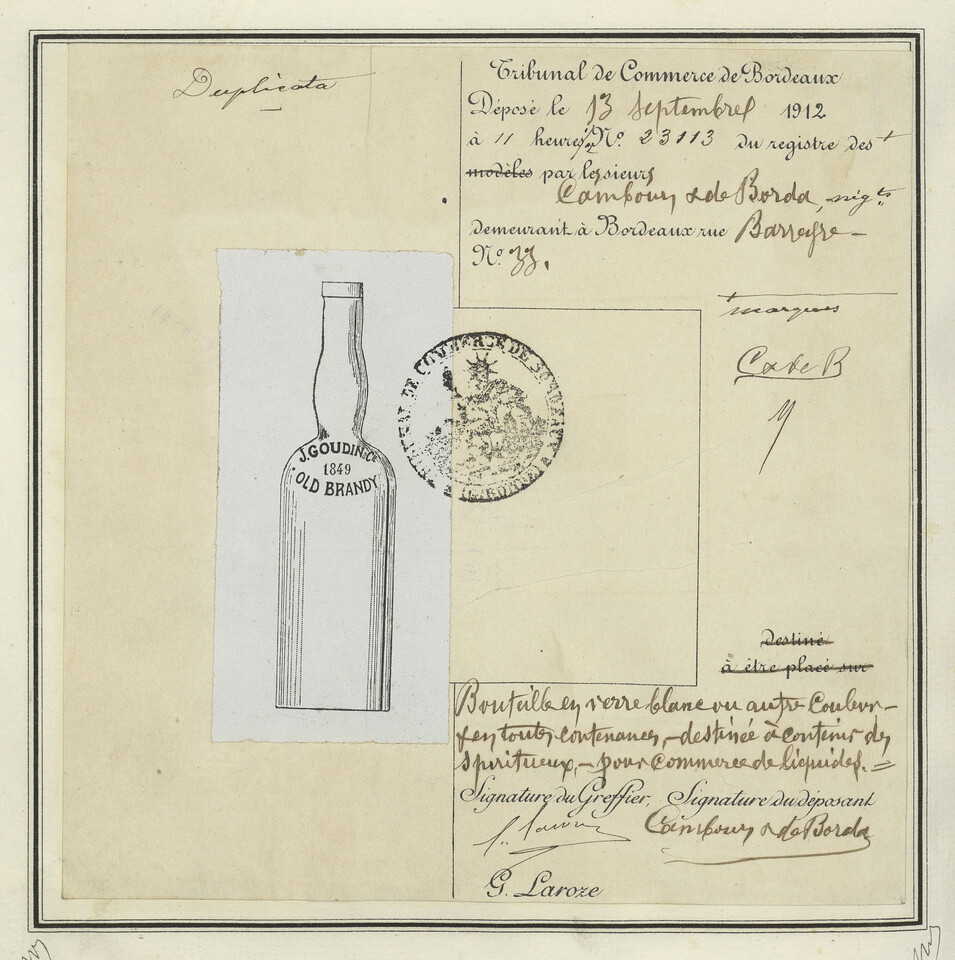 Duplicata
Tribunal de Commerce de Bordeaux
Déposé le 13 Septembre 1912
à 11 heures 1/2 No. 23113 du registre des +
modèles par les sieurs
Cambours & de Borda, nég.ts
demeurant à Bordeaux rue Barreyre
No. 33.
+ marques
C & de B
J. GOUDIN & Co
1849
OLD BRANDY
TRIBUNAL DE COMMERCE DE BORDEAUX
(GIRONDE)
destiné
à être placé sur
Bouteille en verre blanc ou autre Couleur
& en toutes contenances, destinée à contenir des
Spiritueux, pour commerce de liquides.
Signature du Greffier, Signature du déposant
Cambours & de Borda
G. Laroze